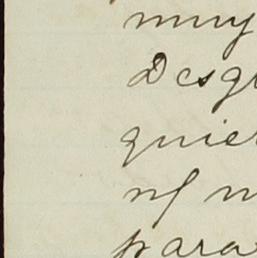 muy
Desgr
quier
ni m
para